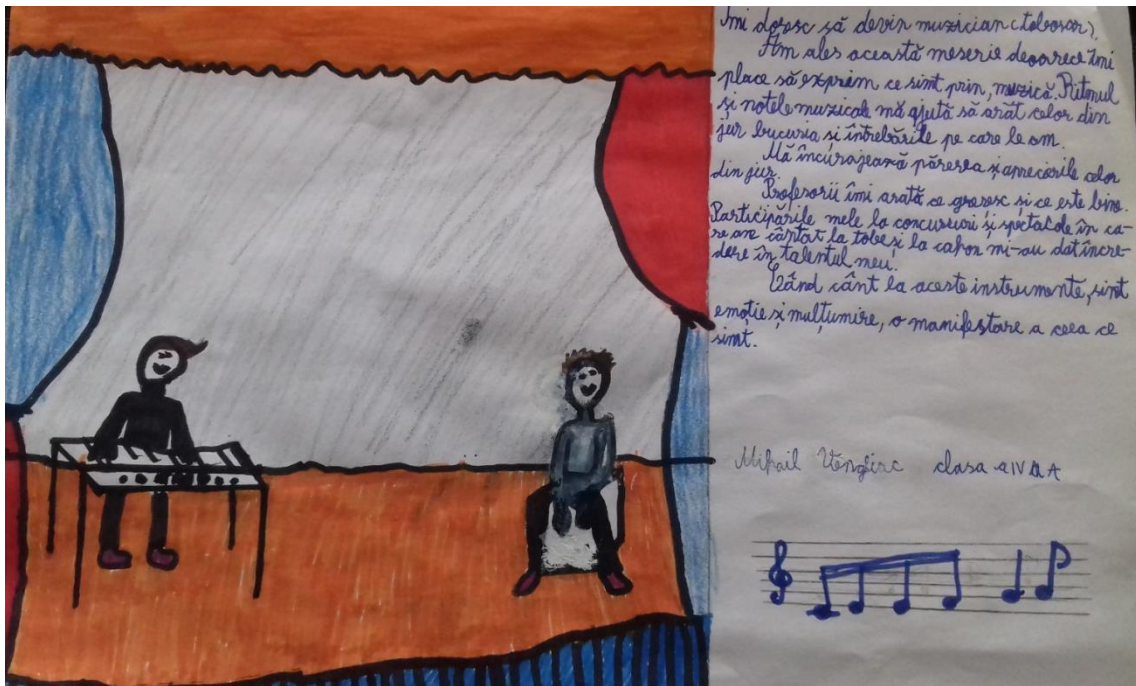 Îmi doresc să devin muzician (toboșar).
Am ales această meserie deoarece îmi
place să exprim ce simt prin, muzică. Ritmul
și notele muzicale mă ajută să arăt celor din
jur bucuria și întrebările pe care le am.
Mă încurajează părerea și aprecierile celor
din jur.
Profesorii îmi arată ce greșesc și ce este bine.
Participările mele la concursuri și spectacole în ca-
re am cântat la tobe și la cahon mi-au dat încre-
dere în talentul meu.
Când cânt la aceste instrumente, simt
emoție și mulțumire, o manifestare a ceea ce
simt.
Mihail clasa a IV a A